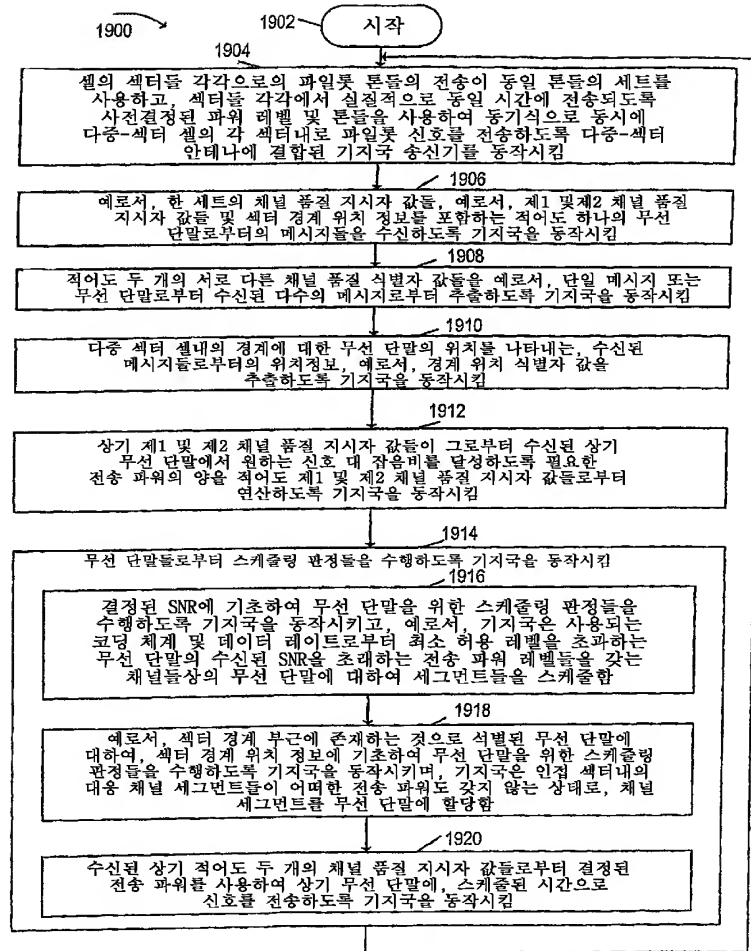 1900
1902
시작
1904
셀의 섹터들 각각으로의 파일롯 톤들의 전송이 동일 톤들의 세트를
사용하고, 섹터들 각각에서 실질적으로 동일 시간에 전송되도록
사전결정된 파워 레벨 및 톤들을 사용하여 동기식으로 동시에
다중-섹터 셀의 각 섹터내로 파일롯 신호를 전송하도록 다중-섹터
안테나에 결합된 기지국 송신기를 동작시킴
1906
예로서, 한 세트의 채널 품질 지시자 값들, 예로서, 제1 및제2 채널 품질
지시자 값들 및 섹터 경계 위치 정보를 포함하는 적어도 하나의 무선
단말로부터의 메시지들을 수신하도록 기지국을 동작시킴
1908
적어도 두 개의 서로 다른 채널 품질 식별자 값들을 예로서, 단일 메시지 또는
무선 단말로부터 수신된 다수의 메시지로부터 추출하도록 기지국을 동작시킴
1910
다중 섹터 셀내의 경계에 대한 무선 단말의 위치를 나타내는, 수신된
메시지들로부터의 위치정보, 예로서, 경계 위치 식별자 값을
추출하도록 기지국을 동작시킴
1912
상기 제1 및 제2 채널 품질 지시자 값들이 그로부터 수신된 상기
무선 단말에서 원하는 신호 대 잡음비를 달성하도록 필요한
전송 파워의 양을 적어도 제1 및 제2 채널 품질 지시자 값들로부터
연산하도록 기지국을 동작시킴
1914
무선 단말들로부터 스케줄링 판정들을 수행하도록 기지국을 동작시킴
1916
결정된 SNR에 기초하여 무선 단말을 위한 스케줄링 판정들을
수행하도록 기지국을 동작시키고, 예로서, 기지국은 사용되는
코딩 체계 및 데이터 레이트로부터 최소 허용 레벨을 초과하는
무선 단말의 수신된 SNR을 초래하는 전송 파워 레벨들을 갖는
채널들상의 무선 단말에 대하여 세그먼트들을 스케줄함
1918
예로서, 섹터 경계 부근에 존재하는 것으로 식별된 무선 단말에
대하여, 섹터 경계 위치 정보에 기초하여 무선 단말을 위한 스케줄링
판정들을 수행하도록 기지국을 동작시키며, 기지국은 인접 섹터내의
대응 채널 세그먼트들이 어떠한 전송 파워도 갖지 않는 상태로, 채널
세그먼트를 무선 단말에 할당함
1920
수신된 상기 적어도 두 개의 채널 품질 지시자 값들로부터 결정된
전송 파워를 사용하여 상기 무선 단말에, 스케줄된 시간으로
신호를 전송하도록 기지국을 동작시킴